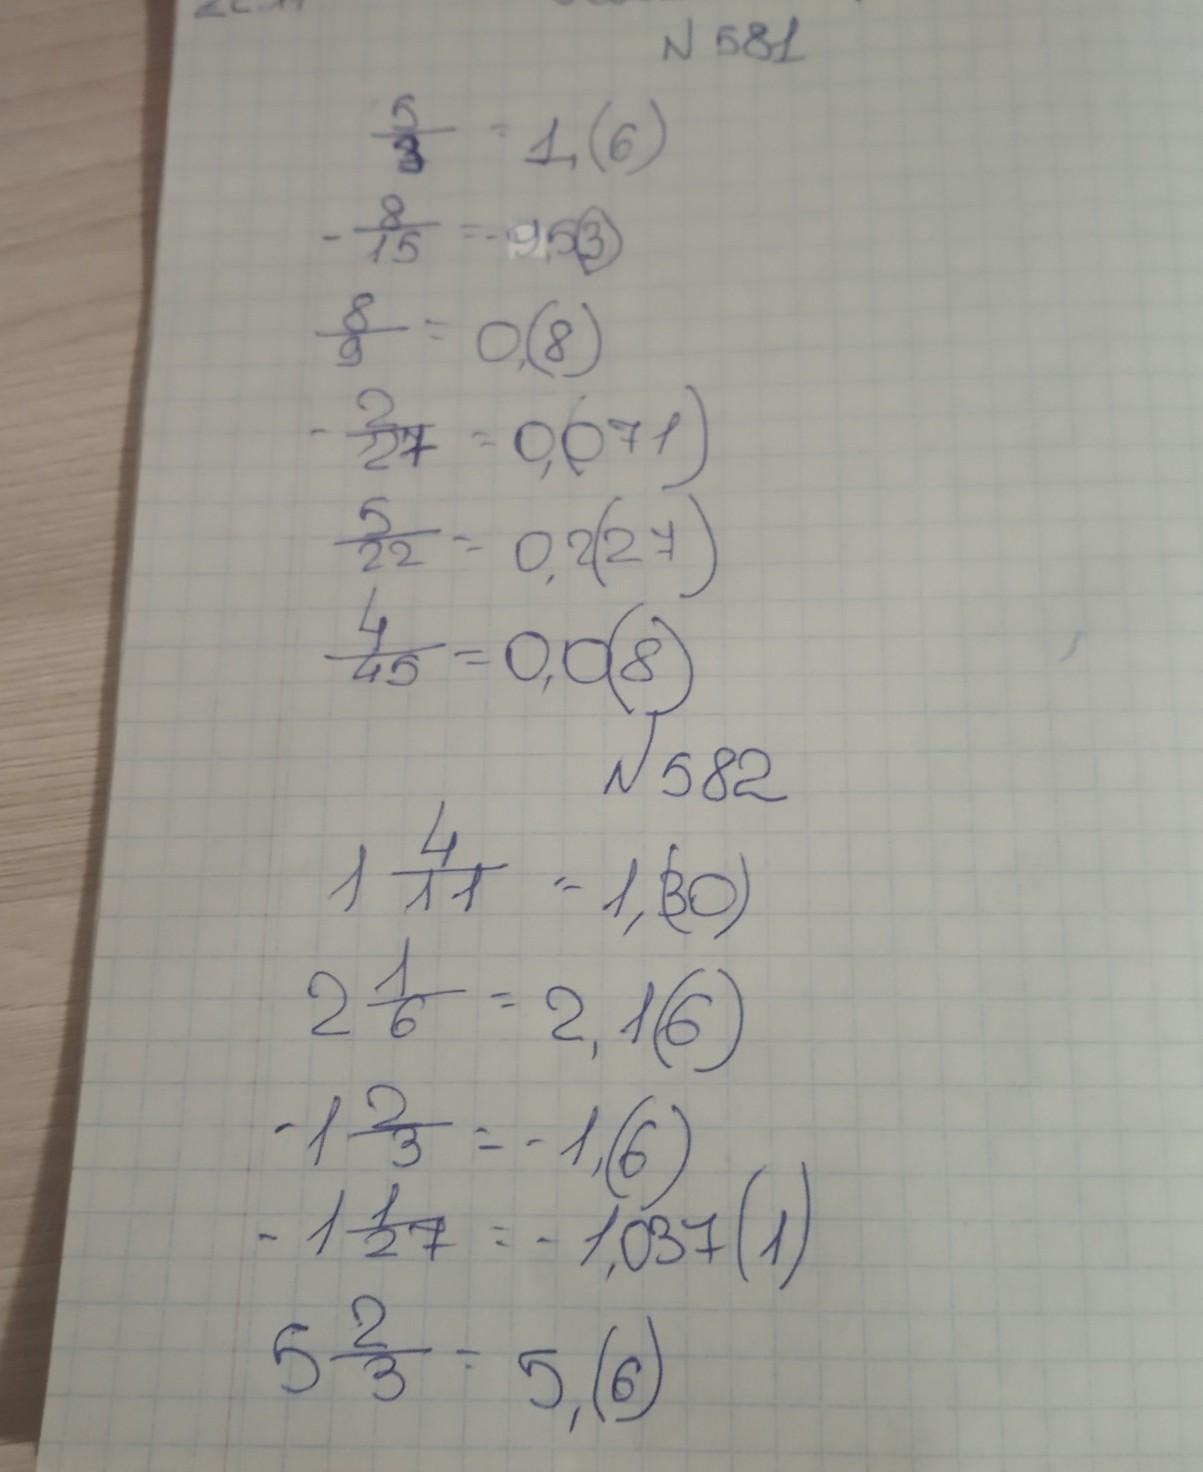 N 581
5/3 = 1,(6)
- 8/15 = - 0,5(3)
8/9 = 0,(8)
- 2/27 = 0,(071)
5/22 = 0,2(27)
4/45 = 0,0(8)
N 582
1 4/11 = 1,(30)
2 1/6 = 2,1(6)
-1 2/3 = -1,(6)
-1 1/27 = -1,037(1)
5 2/3 = 5,(6)